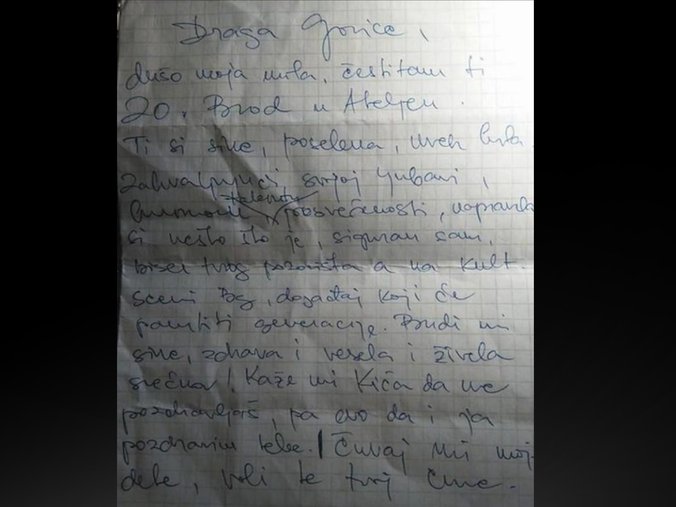 Draga Gorice,
dušo moja mila, čestitam ti
20. Brod u Ateljeu.
Ti si sine, posebna, uvek bila
zahvaljujući svojoj ljubavi,
talentu
posvećenosti, napravila
si nešto što je, siguran sam,
tvog pozorišta a na kult.
sceni Bg, događaj koji će
pamtiti generacije. Budi mi
sine, zdrava i vesela i živela
srećna! Kaže mi Kića da me
pozdravljaš, pa evo da i ja
pozdravim tebe. Čuvaj mi moj
dete, voli te tvoj